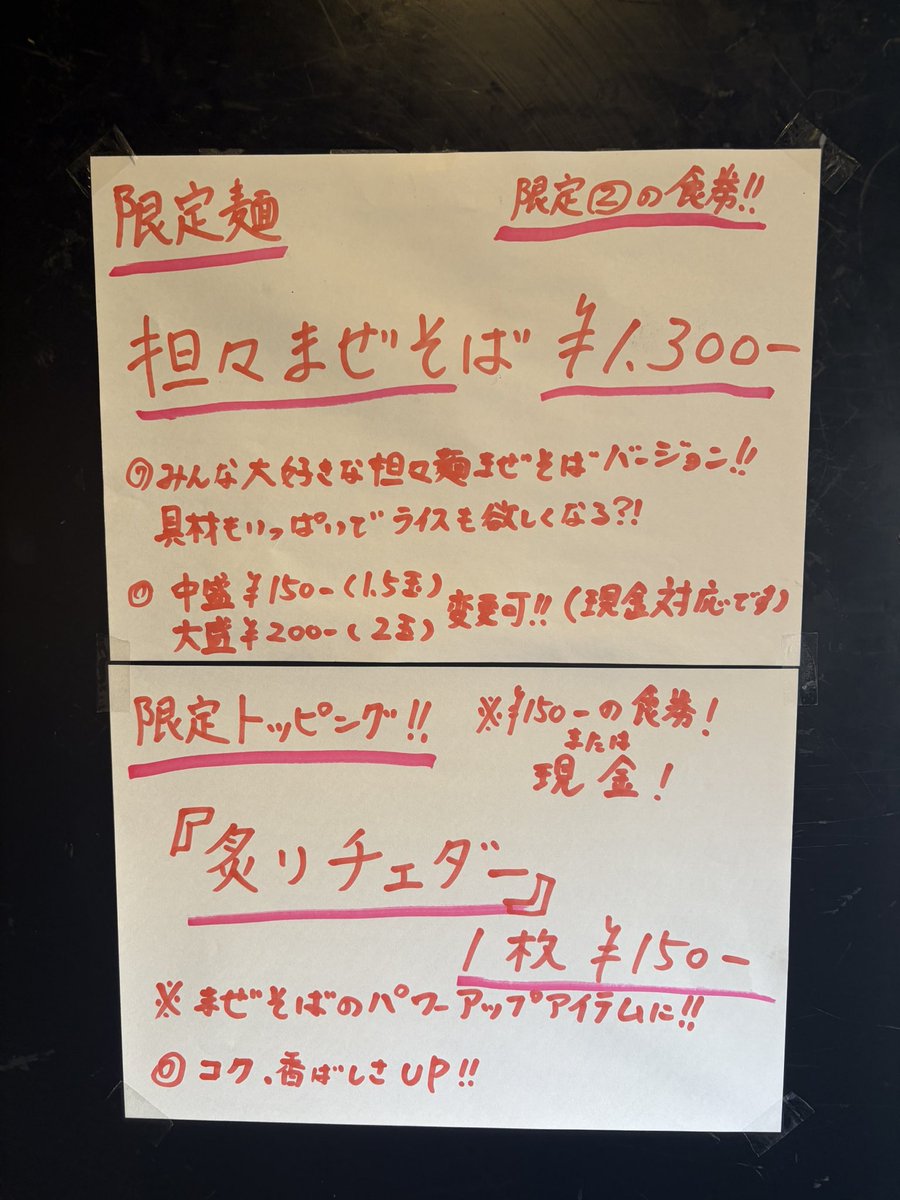 限定麺
限定②の食券!!
担々まぜそば ¥1.300-
みんな大好きな担々麺まぜそばバージョン!!
具材もいっぱいでライスも欲しくなる?!
中盛¥150-(1.5玉)
大盛¥200-(2玉)
変更可!!(現金対応です)
限定トッピング!!
※¥150-の食券!
または
現金!
『炙りチェダー』
1枚 ¥150-
※まぜそばのパワーアップアイテムに!!
コク、香ばしさUP!!